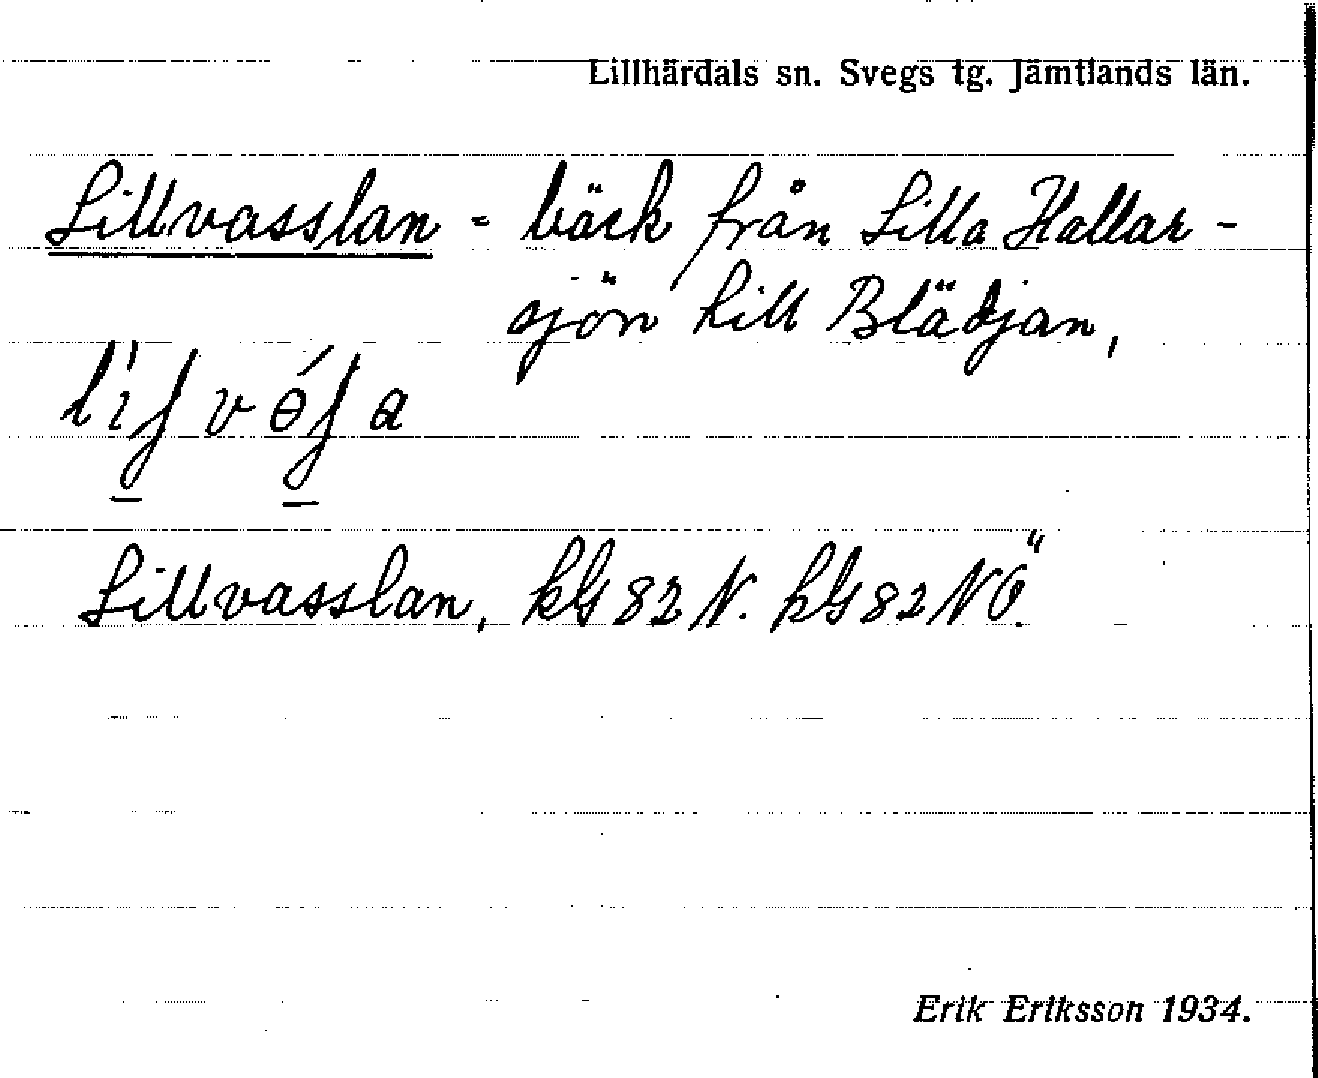 Lillhärdals sn. Svegs tg. Jämtlands län.
Lillvasslan - bäck från Lilla Hallar-
sjön till Blädjan,
Lillvasslan, kG 82 N. kG 82 NÖ.
Erik Eriksson 1934.